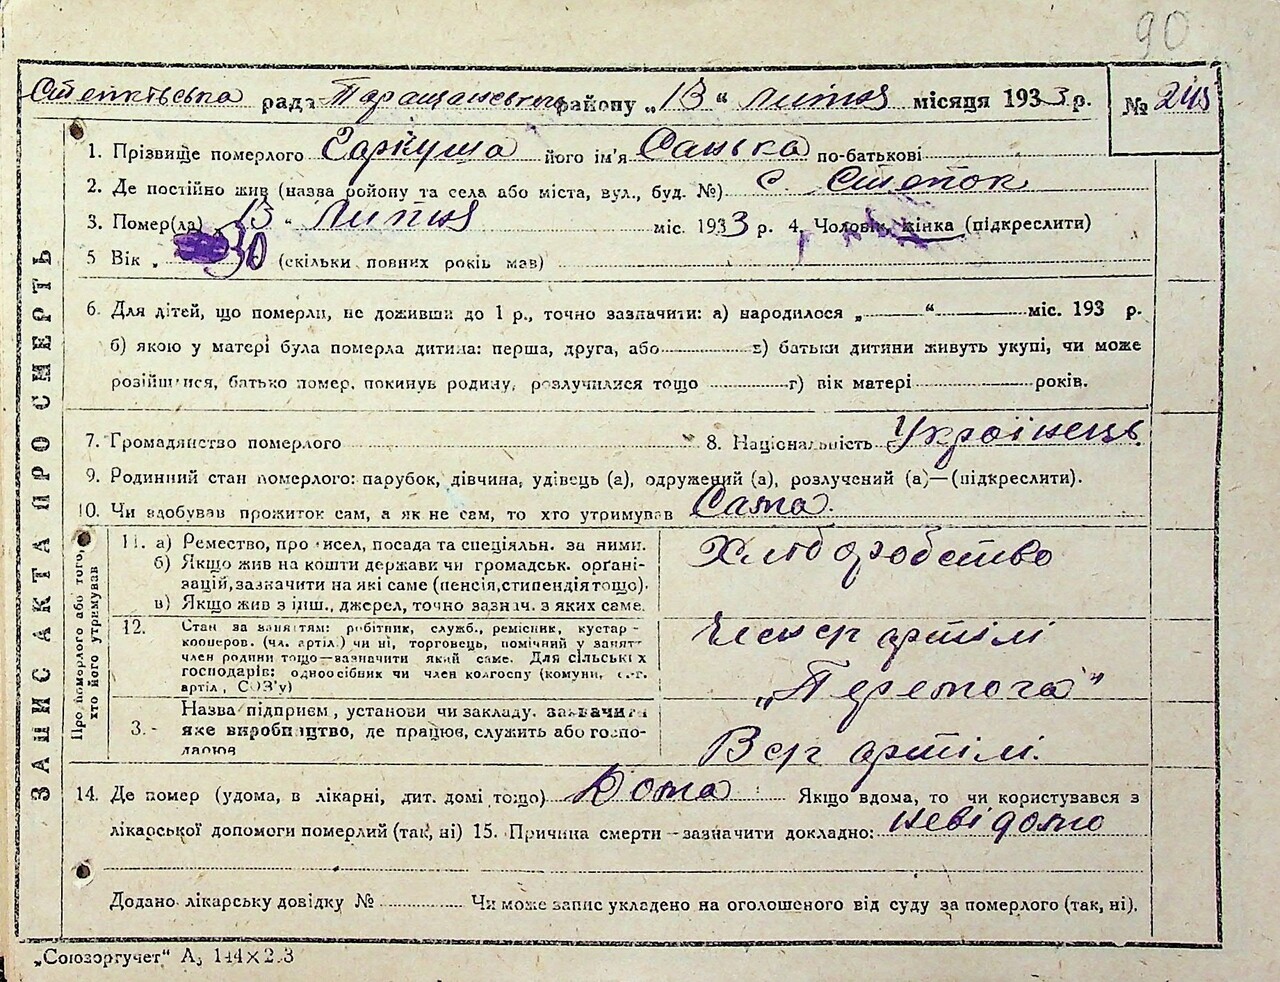 90
Степківська рада Таращанського району „13“ липня місяця 1933 р. № 245
1. Прізвище померлого Гаркуша його ім'я Санька по-батькові
2. Де постійно жив (назва ройону та села або міста, вул., буд. №) с. Степок
3. Помер(ла) 13 „ липня міс. 1933 р. 4. Чоловік, жінка (підкреслити)
5 Вік „ 30 (скільки повних років мав)
6. Для дітей, що померли, не доживши до 1 р., точно зазначити: а) народилося „ “ міс. 193 р.
б) якою у матері була померла дитина: перша, друга, або в) батьки дитини живуть укупі, чи може
розійшлися, батько помер, покинув родину, розлучилися тощо г) вік матері років.
7. Громадянство померлого 8. Національність Українець
9. Родинний стан померлого: парубок, дівчина, удівець (а), одружений (а), розлучений (а)—(підкреслити).
10. Чи здобував прожиток сам, а як не сам, то хто утримував Сама.
ЗАПИС АКТА ПРО СМЕРТЬ
Про померлого або того, хто його утримував
11. а) Ремество, промисел, посада та спеціяльн. за ними.
б) Якщо жив на кошти держави чи громадськ. організацій, зазначити на які саме (пенсія, стипендія тощо).
в) Якщо жив з інш., джерел, точно зазнач. з яких саме.
Хліборобство
12. Стан за заняттям: робітник, служб., ремісник, кустар-
кооперов. (чл. артіл.) чи ні, торговець, помічний у занят
член родини тощо—зазначити який саме. Для сільських
господарів: одноосібник чи член колгоспу (комуни, с.-г.
артіл, СОЗ'у)
артілі
„Перемога“
3. Назва підприєм, установи чи закладу. зазначити
яке виробництво, де працює, служить або госпо-
дарює
артілі.
14. Де помер (удома, в лікарні, дит. домі тощо) Дома Якщо вдома, то чи користувався з
лікарської допомоги померлий (так, ні) 15. Причина смерти—зазначити докладно: невідомо
Додано лікарську довідку № Чи може запис укладено на оголошеного від суду за померлого (так, ні).
„Союзоргучет“ А5 144×2.3